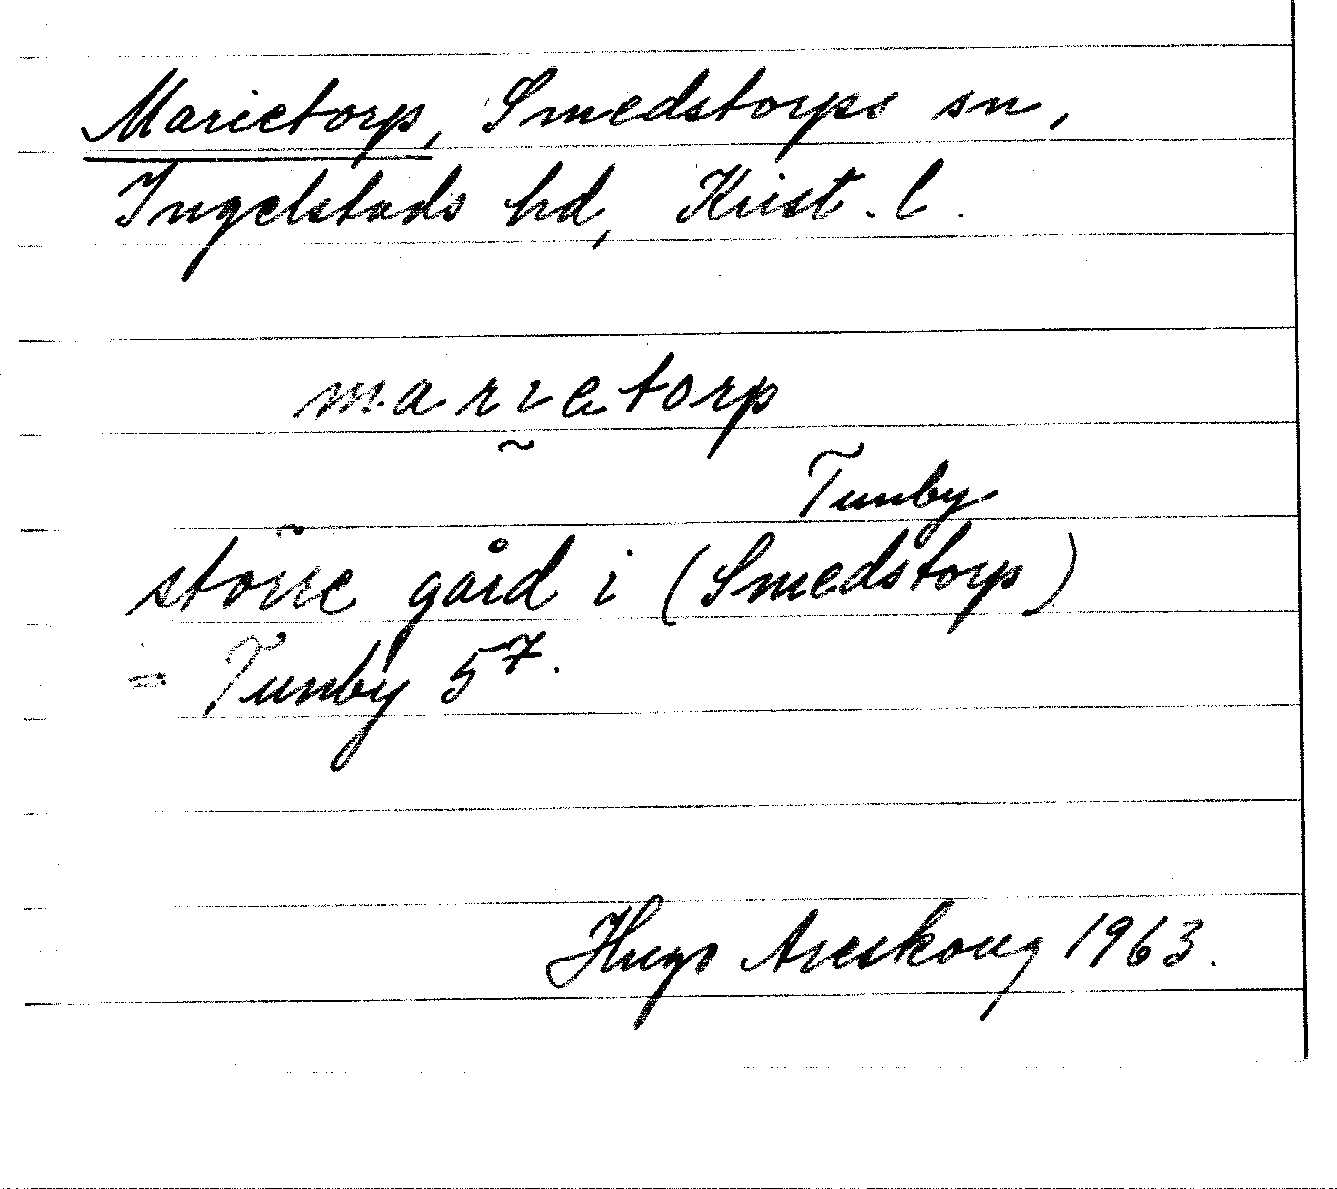 Marietorp, Smedstorps sn,
Ingelstads hd, Krist. l.
marietorp
Tunby
större gård i (Smedstorp)
= Tunby 5⁷.
Hugo Areskoug 1963.